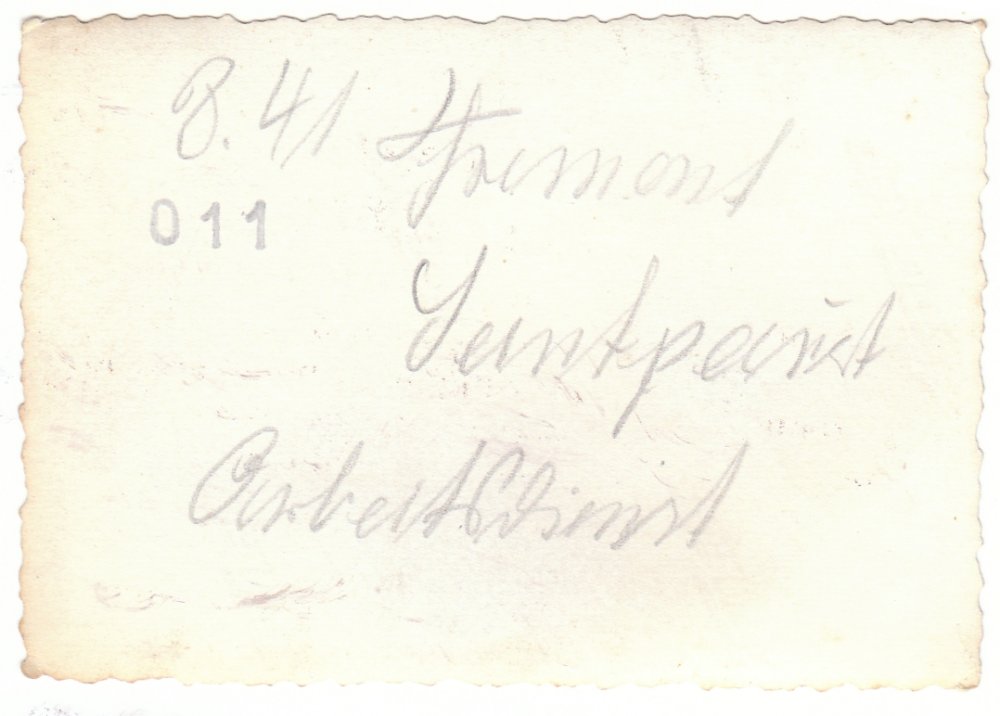 8.41 Fremont
011
Santpoort
Arbeitsdienst